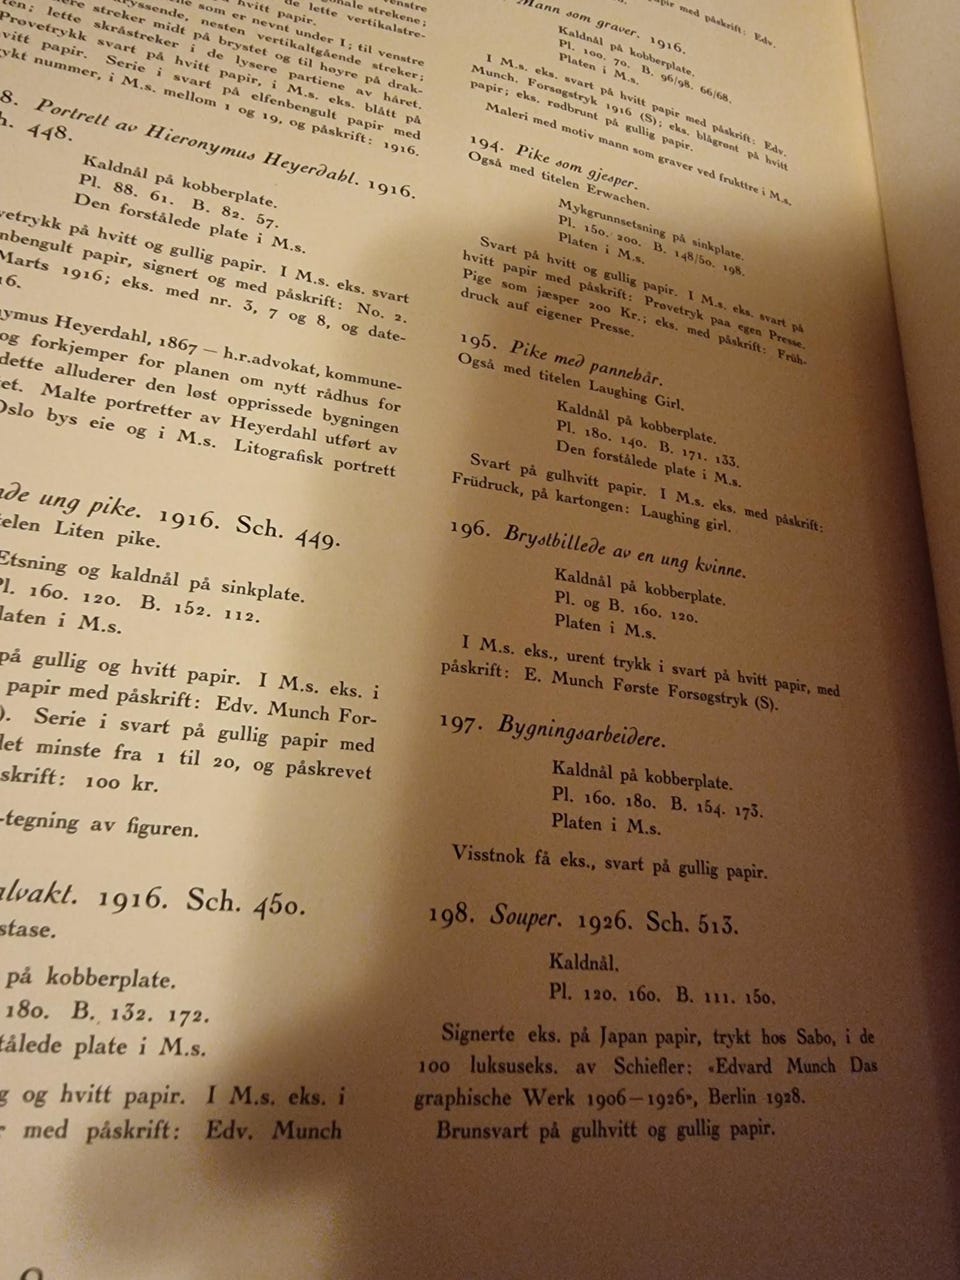 de lette vertikalstre-
som er nevnt under I; til venstre
nesten vertikaltgående streker;
streker midt på brystet og til høyre på drak-
lette skråstreker i de lysere partiene av håret.
Prøvetrykk svart på hvitt papir, i M.s. eks. blått på
hvitt papir. Serie i svart på elfenbengult papir med
nummer, i M.s. mellom 1 og 19, og påskrift: 1916.
8. Portrett av Hieronymus Heyerdahl. 1916.
448.
Kaldnål på kobberplate.
Pl. 88. 61. B. 82. 57.
Den forstålede plate i M.s.
vetrykk på hvitt og gullig papir. I M.s. eks. svart
nbengult papir, signert og med påskrift: No. 2.
Marts 1916; eks. med nr. 3, 7 og 8, og date-
16.
ymus Heyerdahl, 1867 — h.r.advokat, kommune-
og forkjemper for planen om nytt rådhus for
dette alluderer den løst opprissede bygningen
et. Malte portretter av Heyerdahl utført av
Oslo bys eie og i M.s. Litografisk portrett
nde ung pike. 1916. Sch. 449.
telen Liten pike.
Etsning og kaldnål på sinkplate.
Pl. 160. 120. B. 152. 112.
laten i M.s.
på gullig og hvitt papir. I M.s. eks. i
papir med påskrift: Edv. Munch For-
). Serie i svart på gullig papir med
det minste fra 1 til 20, og påskrevet
skrift: 100 kr.
-tegning av figuren.
alvakt. 1916. Sch. 450.
stase.
på kobberplate.
180. B. 132. 172.
tålede plate i M.s.
g og hvitt papir. I M.s. eks. i
r med påskrift: Edv. Munch
papir med påskrift: Edv.
Mann som graver. 1916.
Kaldnål på kobberplate.
Pl. 100. 70. B. 96/98. 66/68.
Platen i M.s.
I M.s. eks. svart på hvitt papir med påskrift: Edv.
Munch. Forsøgstryk 1916 (S); eks. blågrønt på hvitt
papir; eks. rødbrunt på gullig papir.
Maleri med motiv mann som graver ved frukttre i M.s.
194. Pike som gjesper.
Også med titelen Erwachen.
Mykgrunnsetsning på sinkplate.
Pl. 150. 200. B. 148/50. 198.
Platen i M.s.
Svart på hvitt og gullig papir. I M.s. eks. svart på
hvitt papir med påskrift: Prøvetryk paa egen Presse.
Pige som jæsper 200 Kr.; eks. med påskrift: Früh-
druck auf eigener Presse.
195. Pike med pannehår.
Også med titelen Laughing Girl.
Kaldnål på kobberplate.
Pl. 180. 140. B. 171. 133.
Den forstålede plate i M.s.
Svart på gulhvitt papir. I M.s. eks. med påskrift:
Früdruck, på kartongen: Laughing girl.
196. Brystbillede av en ung kvinne.
Kaldnål på kobberplate.
Pl. og B. 160. 120.
Platen i M.s.
I M.s. eks., urent trykk i svart på hvitt papir, med
påskrift: E. Munch Første Forsøgstryk (S).
197. Bygningsarbeidere.
Kaldnål på kobberplate.
Pl. 160. 180. B. 154. 173.
Platen i M.s.
Visstnok få eks., svart på gullig papir.
198. Souper. 1926. Sch. 513.
Kaldnål.
Pl. 120. 160. B. 111. 150.
Signerte eks. på Japan papir, trykt hos Sabo, i de
100 luksuseks. av Schiefler: «Edvard Munch Das
graphische Werk 1906—1926», Berlin 1928.
Brunsvart på gulhvitt og gullig papir.